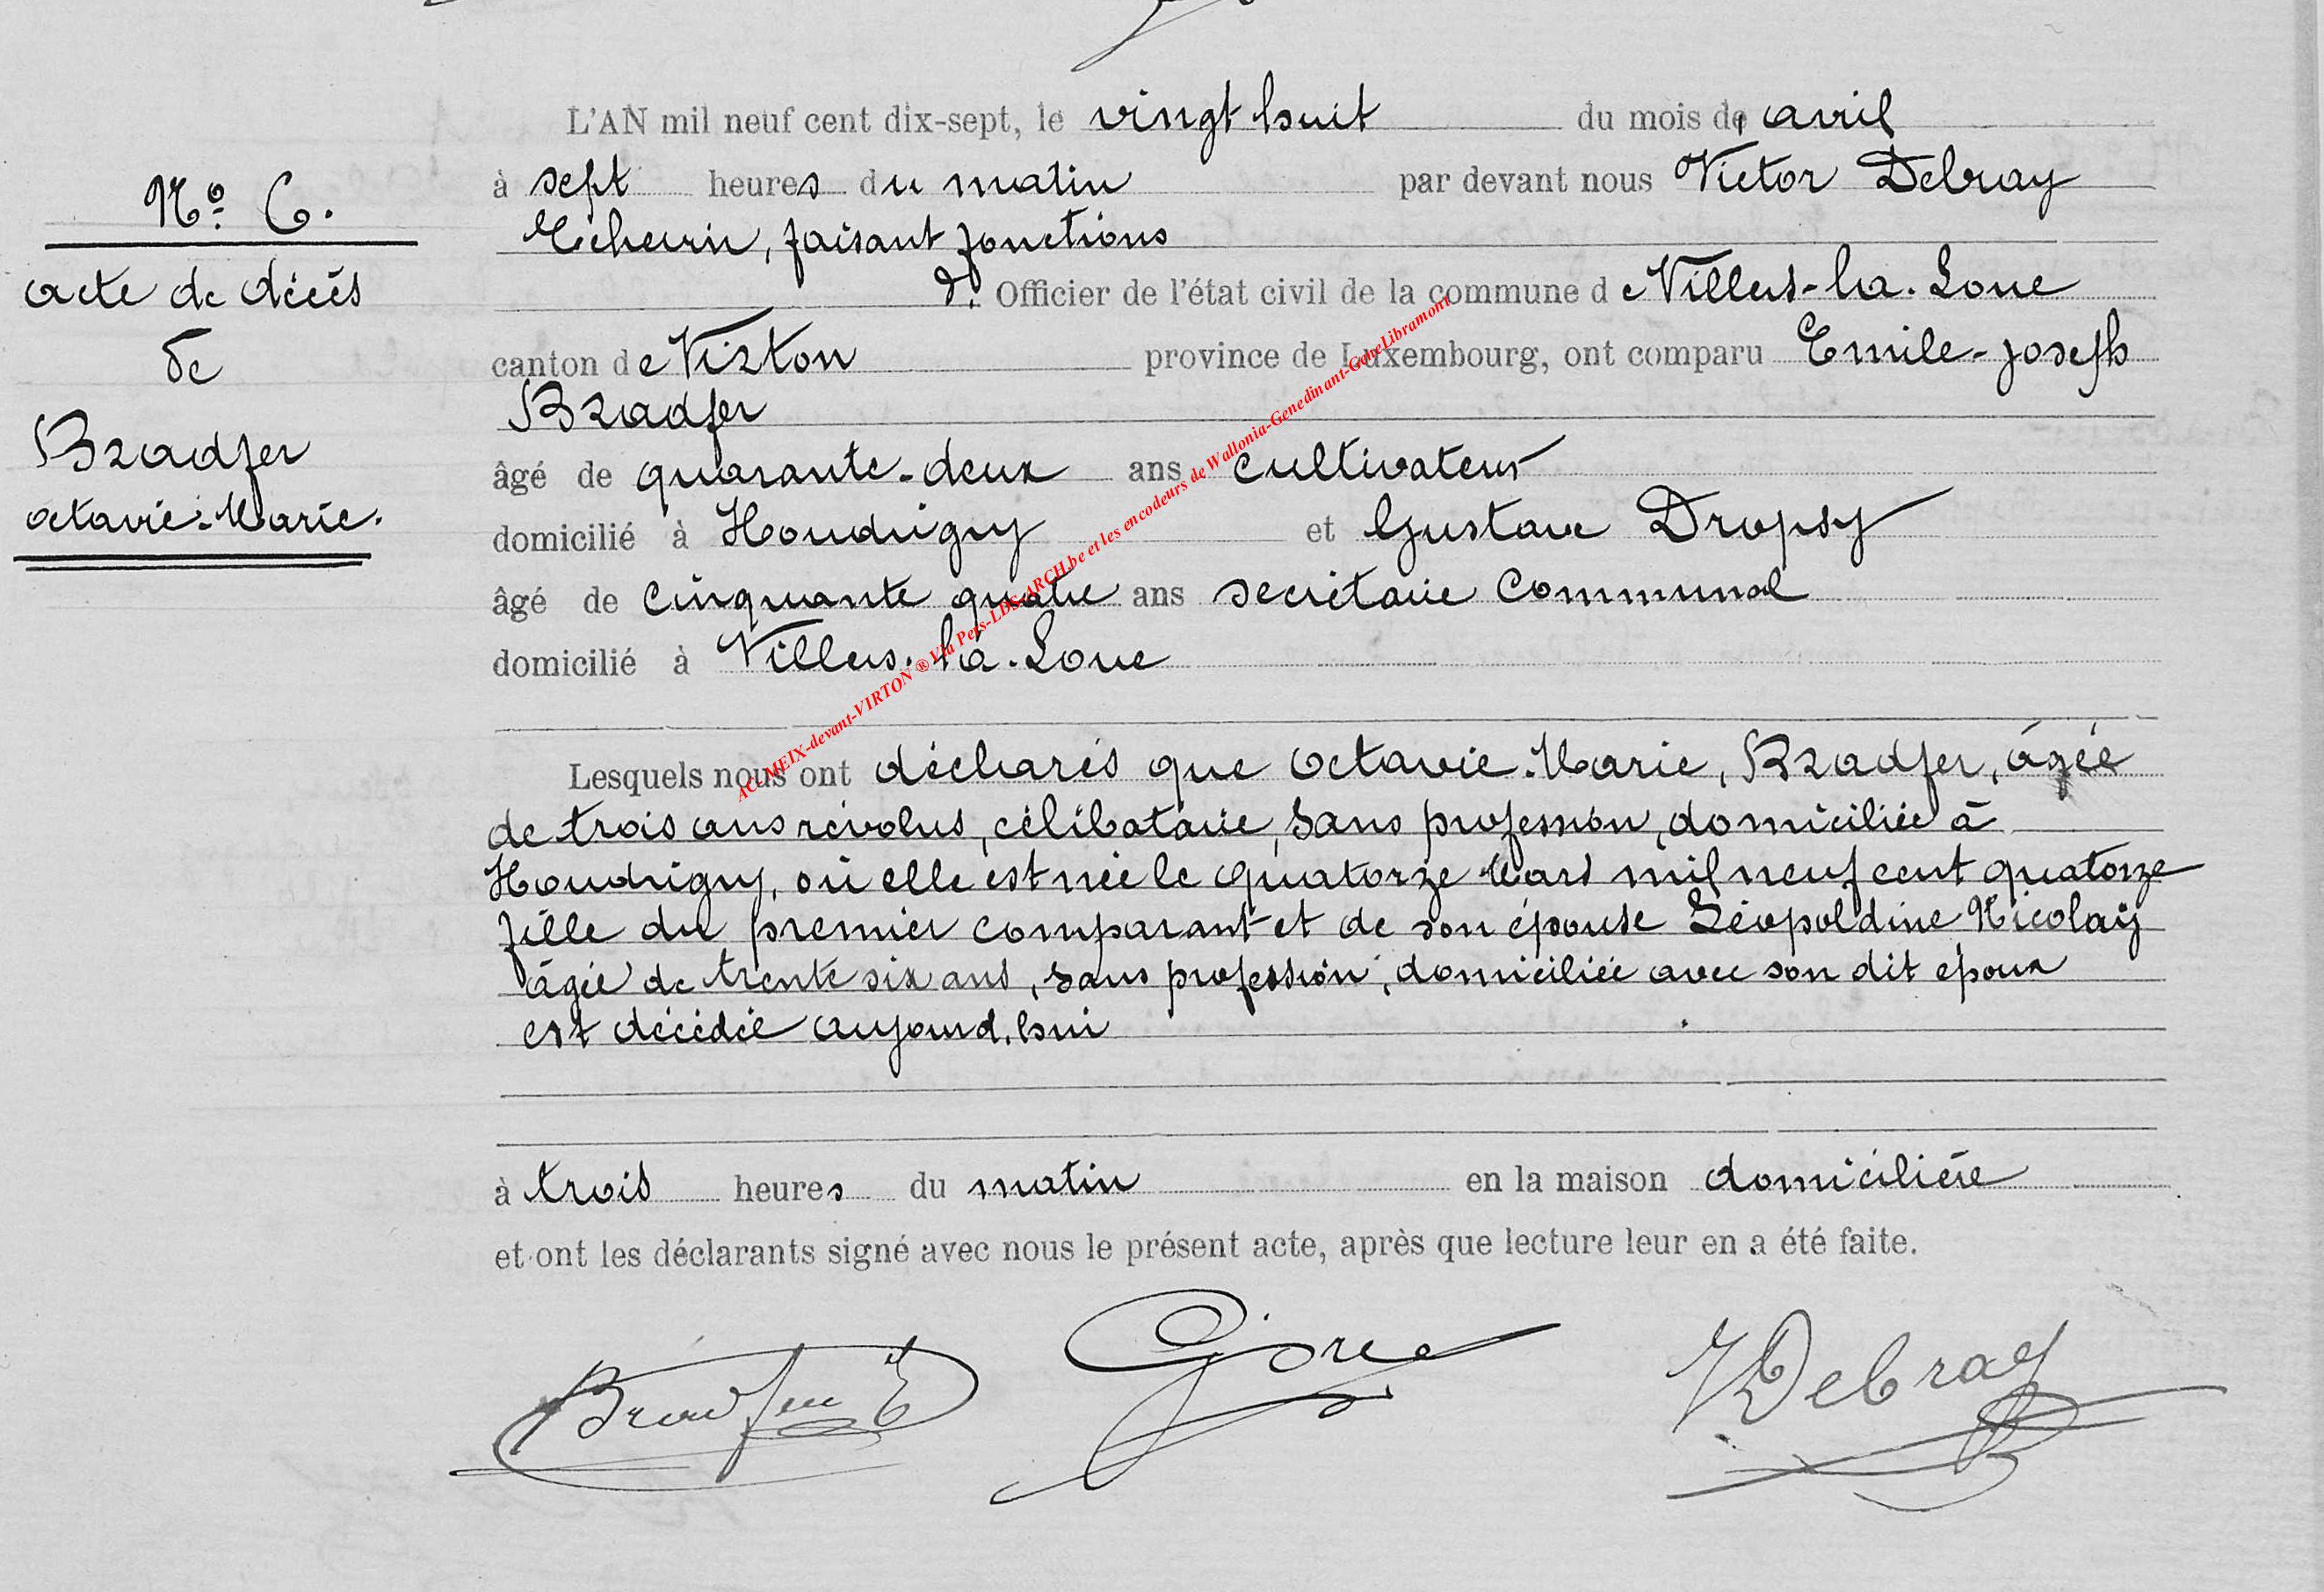 L'AN mil neuf cent dix-sept, le vingt huit du mois de, avril
à sept heures du matin par devant nous Victor Debray
Echevin, faisant fonctions
d. Officier de l'état civil de la commune de Villers-la-Loue
canton de Virton province de Luxembourg, ont comparu Emile-Joseph
Bradfer
âgé de quarante-deux ans cultivateur
domicilié à Houdrigny et Gustave Dropsy
âgé de cinquante quatre ans secrétaire communal
domicilié à Villers-la-Loue
Lesquels nous ont déclarés que Octavie-Marie, Bradfer, âgée
de trois ans révolus, célibataire, sans profession, domiciliée à
Houdrigny, où elle est née le quatorze Mars mil neuf cent quatorze
fille du premier comparant et de son épouse Léopoldine Nicolaÿ
âgée de trente six ans, sans profession, domiciliée avec son dit époux
est décédée aujourd.hui
à trois heures du matin en la maison domicilière
et ont les déclarants signé avec nous le présent acte, après que lecture leur en a été faite.
Bradfer E
VDebray
N° 6.
acte de décès
de
Bradfer
Octavie-Marie.
AC-MEIX-devant-VIRTON ® Via Pers-LDS-ARCH.be et les encodeurs de Wallonia-Genedinant-GeneLibramont